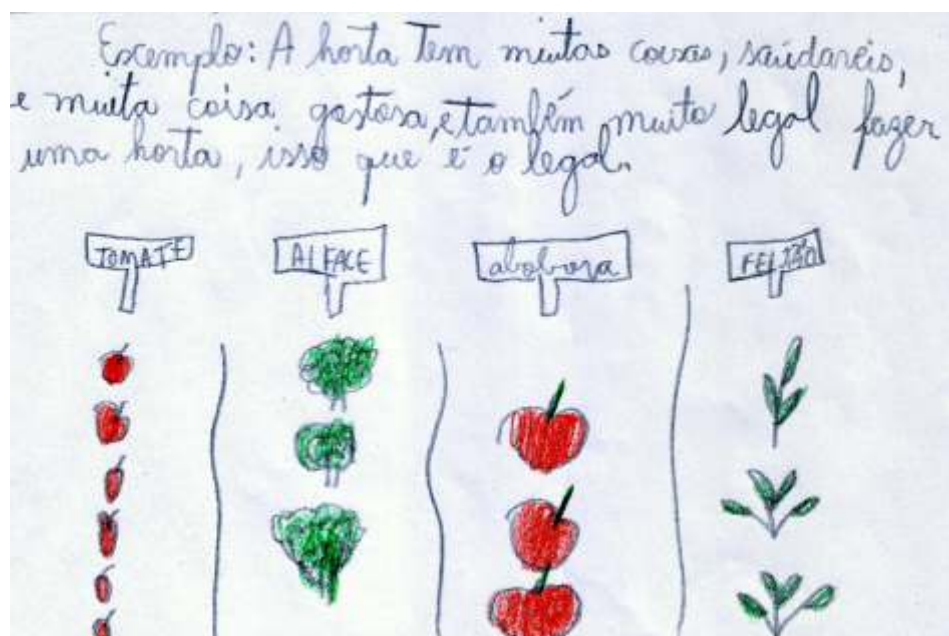 Exemplo: A horta Tem muitas coisas, saúdaveis,
e muita coisa gostosa, e também muito legal fazer
uma horta, isso que é o legal.
TOMATE ALFACE abobora FEIJÃO